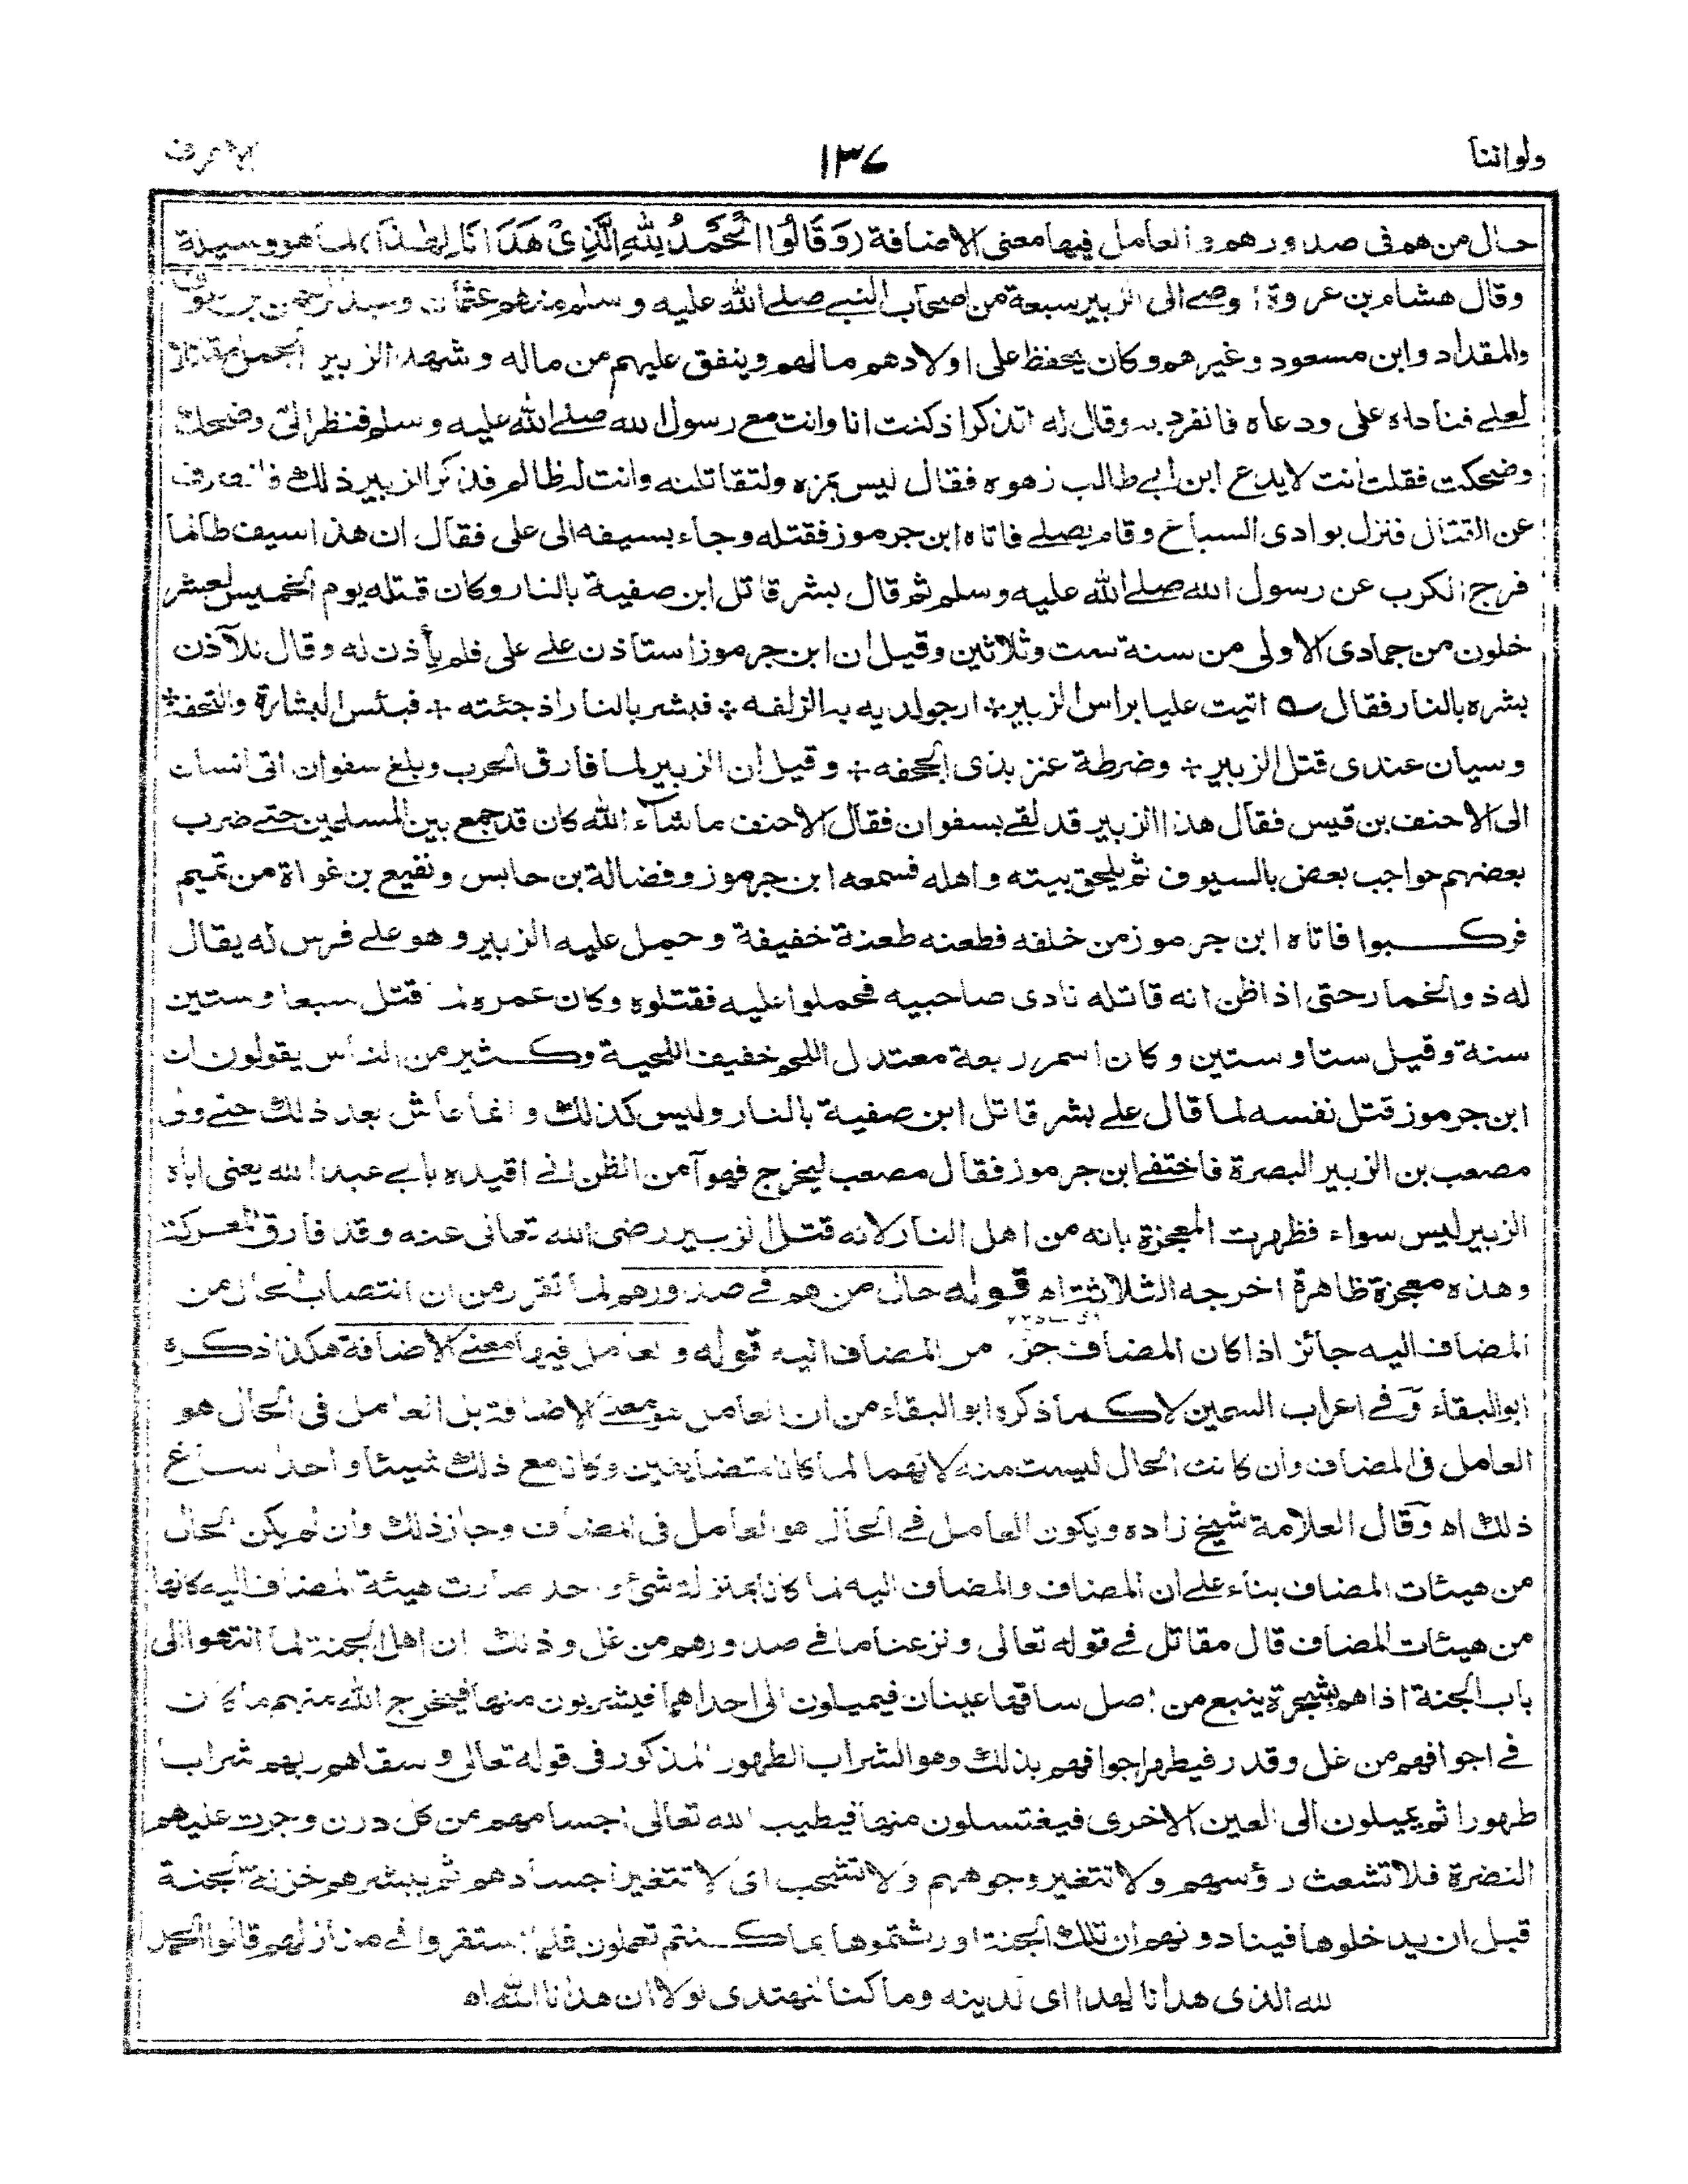 ولواننا
١٣٧
الاعراف
حال من هم فى صدورهم والعامل فيها معنى الاضافة (وَقَالُوا الْحَمْدُ لِلّٰهِ الَّذِىْ هَدَانَا لِهٰذَا) لما هو وسيلة
وقال هشام بن عروة اوصے الى الزبير سبعة من اصحاب النبے صلے الله عليه وسلم منهم عثمان وعبد الرحمن بن عوف
والمقداد وابن مسعود وغيرهم وكان يحفظ على اولادهم مالهم وينفق عليهم من ماله وشهد الزبير الجمل مقاتلا
لعلے فناداه على ودعاه فانفرد به وقال له اتذكر اذ كنت انا وانت مع رسول الله صلے الله عليه وسلم فنظر الىّ وضحك
وضحكت فقلت انت لا يدع ابن ابے طالب زهوه فقال ليس بمزه ولتقاتلنه وانت له ظالم فذكر الزبير ذلك فانصرف
عن القتال فنزل بوادى السباع وقام يصلے فاتاه ابن جرموز فقتله وجاء بسيفه الى على فقال ان هذا سيف طالما
فرج الكرب عن رسول الله صلے الله عليه وسلم ثم قال بشر قاتل ابن صفية بالنار وكان قتله يوم الخميس لعشر
خلون من جمادى الاولى من سنة ست وثلاثين وقيل ان ابن جرموز استاذن علے على فلم يأذن له وقال للآذن
بشره بالنار فقال ؎ اتيت عليا براس الزبير ÷ ارجو لديه به الزلفه ÷ فبشر بالنار اذ جئته ÷ فبئس البشارة والتحفة
وسيان عندى قتل الزبير ÷ وضرطة عنز بذى الجحفه ÷ وقيل ان الزبير لما فارق الحرب وبلغ سفوان اتى انسان
الى الاحنف بن قيس فقال هذا الزبير قد لقے بسفوان فقال الاحنف ما شاء الله كان قد جمع بين المسلمين حتے ضرب
بعضهم حواجب بعض بالسيوف ثم يلحق بيته واهله فسمعه ابن جرموز وفضالة بن حابس ونفيع بن غواة من تميم
فركبوا فاتاه ابن جرموز من خلفه فطعنه طعنة خفيفة وحمل عليه الزبير وهو علے فرس له يقال
له ذوالخمار حتى اذا ظن انه قاتله نادى صاحبيه فحملوا عليه فقتلوه وكان عمره لما قتل سبعا وستين
سنة وقيل ستا وستين وكان اسمر ربعة معتدل اللحم خفيف اللحية وكثير من الناس يقولون ان
ابن جرموز قتل نفسه لما قال علے بشر قاتل ابن صفية بالنار وليس كذلك وانما عاش بعد ذلك حتے ولى
مصعب بن الزبير البصرة فاختفے ابن جرموز فقال مصعب ليخرج فهو آمن الظن انے اقيده بابے عبد الله يعنى اباه
الزبير ليس سواء فظهرت المعجزة بانه من اهل النار لانه قتل الزبير رضى الله تعالى عنه وقد فارق المعركة
وهذه معجزة ظاهرة اخرجه الثلاثة اه قوله حال من هم فے صدورهم لما تقرر من ان انتصاب الحال من
المضاف اليه جائز اذا كان المضاف جزء من المضاف اليه قوله والعامل فيها معنے الاضافة هكذا ذكره
ابو البقاء وفے اعراب السمين لا كما ذكره ابو البقاء من ان العامل هو معنے الاضافة بل العامل فى الحال هو
العامل فى المضاف وان كانت الحال ليست منه لانهما لما كانا متضايفين وكانا مع ذلك شيئا واحدا ساغ
ذلك اه وقال العلامة شيخ زاده ويكون العامل فے الحال هو العامل فى المضاف وجاز ذلك وان لم يكن الحال
من هيئات المضاف بناء علے ان المضاف والمضاف اليه لما كانا بمنزلة شئ واحد صارت هيئة المضاف اليه كانها
من هيئات المضاف قال مقاتل فے قوله تعالى ونزعنا ما فے صدورهم من غل وذلك ان اهل الجنة لما انتهوا الى
باب الجنة اذا هم بشجرة ينبع من اصل ساقها عينان فيميلون الى احداهما فيشربون منها فيخرج الله منهم ما كان
فے اجوافهم من غل وقدر فيطهر اجوافهم بذلك وهو الشراب الطهور المذكور فى قوله تعالى وسقاهم ربهم شرابا
طهورا ثم يميلون الى العين الاخرى فيغتسلون منها فيطيب الله تعالى اجسامهم من كل درن وجرت عليهم
النضرة فلا تشعث رؤسهم ولا تتغير وجوههم ولا تشحب اى لا تتغير اجسادهم ثم يبشرهم خزنة الجنة
قبل ان يدخلوها فينادونهم ان تلك الجنة اورثتموها بما كنتم تعملون فلما استقروا فے منازلهم قالوا الحمد
لله الذى هدانا لهذا اى لدينه وما كنا لنهتدى لولا ان هدانا الله اه